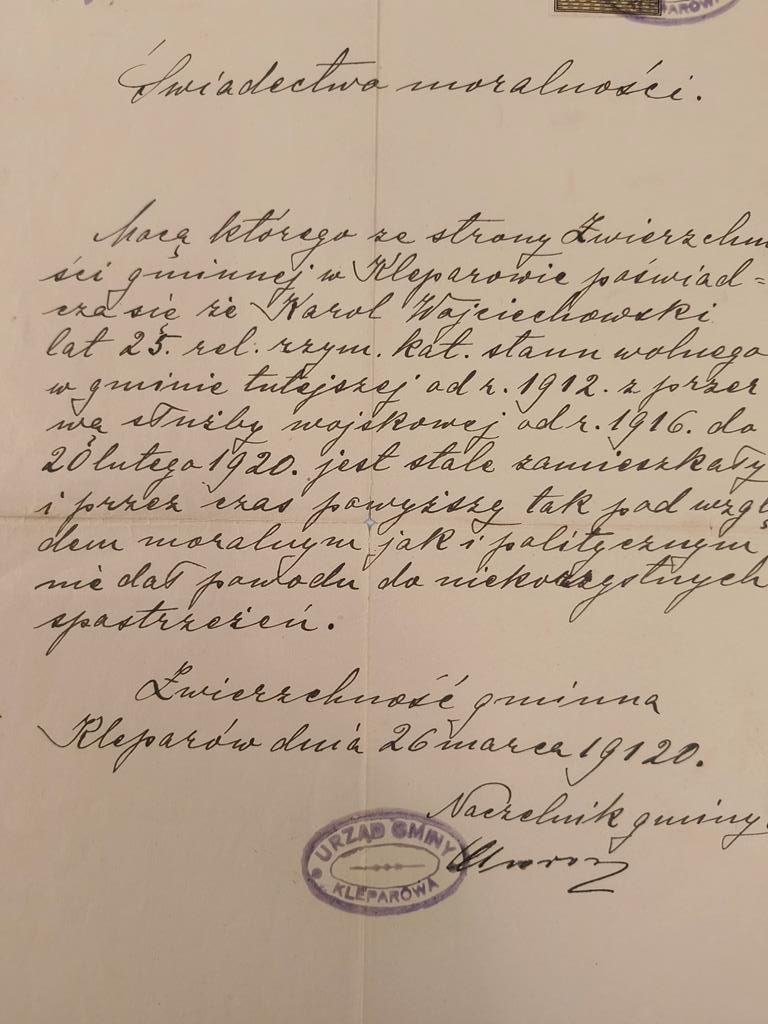 KLEPAROWA
Świadectwo moralności.
Mocą którego ze strony Zwierzchno
ści gminnej w Kleparowie poświad=
cza się że Karol Wojciechowski
lat 25. rel. rzym. kat. stanu wolnego
w gminie tutejszej od r. 1912. z przer
wą służby wojskowej od r. 1916. do
20 lutego 1920. jest stale zamieszkały
i przez czas powyższy tak pod wzglę
dem moralnym jak i politycznym
nie dał powodu do niekorzystnych
spostrzeżeń.
Zwierzchność gminna
Kleparów dnia 26 marca 19120.
Naczelnik gminy
URZĄD GMINY
KLEPAROWA